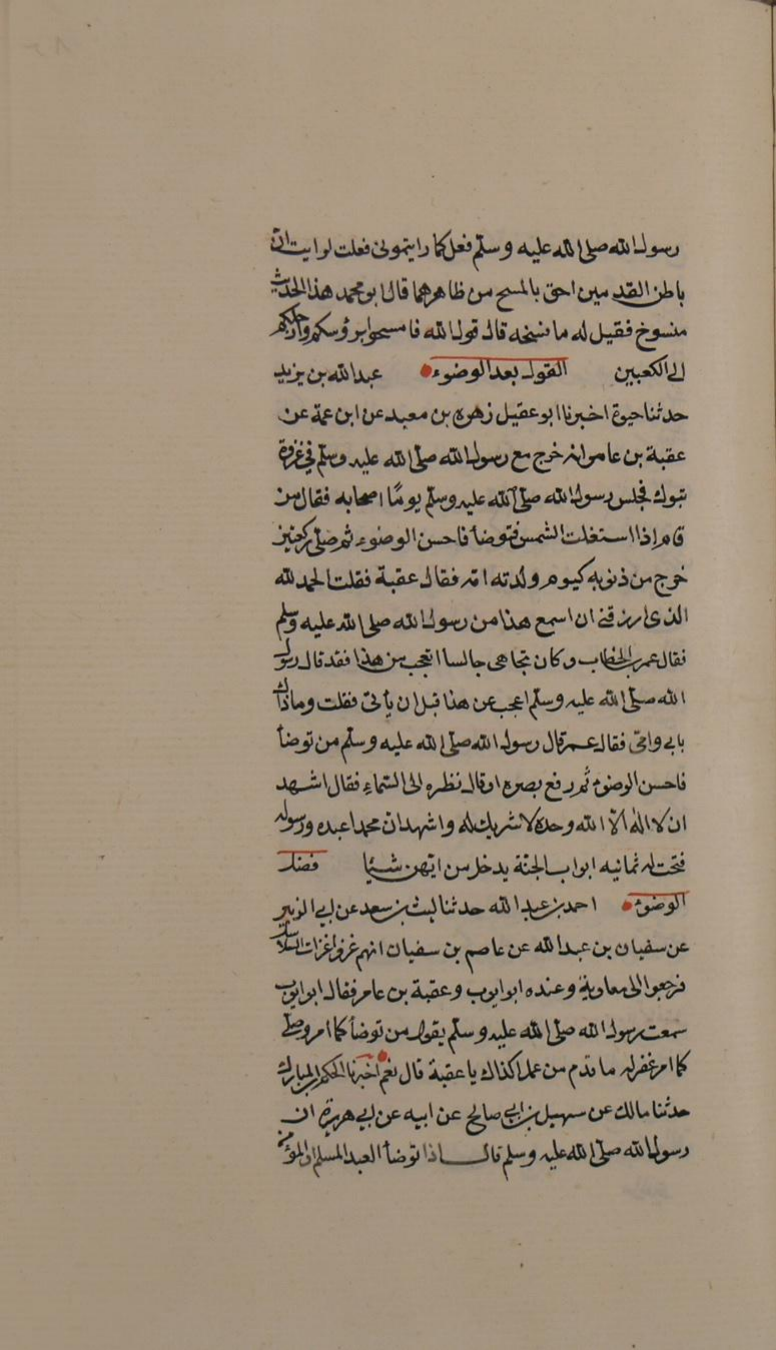 رسول الله صلى الله عليه وسلم فعل كما رايتمونى فعلت لرايت ان
باطن القدمين احق بالمسح من ظاهرهما قال ابو محمد هذا الحديث
منسوخ فقيل له ما نسخه قال قول الله فامسحوا برؤسكم وارجلكم
الى الكعبين القول بعد الوضوء عبد الله بن يزيد
حدثنا حيوة اخبرنا ابو عقيل زهرة بن معبد عن ابن عمة عن
عقبة بن عامر انه خرج مع رسول الله صلى الله عليه وسلم في غزوة
تبوك فجلس رسول الله صلى الله عليه وسلم يومًا اصحابه فقال من
قام اذا استغلت الشمس فتوضأ فاحسن الوضوء ثم صلى ركعتين
خرج من ذنوبه كيوم ولدته امه فقال عقبة فقلت الحمد لله
الذى رزقني ان اسمع هذا من رسول الله صلى الله عليه وسلم
فقال عمر بن الخطاب وكان تجاهى جالسا اتعجب من هذا فقد قال رسول
الله صلى الله عليه وسلم اعجب من هذا قبل ان يأتى فقلت وما ذاك
بابى وامى فقال عمر قال رسول الله صلى الله عليه وسلم من توضأ
فاحسن الوضوء ثم رفع بصره او قال نظره الى السماء فقال اشهد
ان لا اله الا الله وحده لا شريك له واشهد ان محمدا عبده ورسوله
فتحت له ثمانيه ابواب الجنة يدخل من ايتهن شئيا فضل
الوضوء احمد بن عبد الله حدثنا ليث بن سعد عن ابي الزبير
عن سفيان بن عبد الله عن عاصم بن سفيان انهم غزوا غزات السلاسل
فرجعوا الى معاوية وعنده ابو ايوب وعقبة بن عامر فقال ابو ايوب
سمعت رسول الله صلى الله عليه وسلم يقول من توضأ كما امر وصلى
كما امر غفر له ما تقدم من عمل اكذاك يا عقبة قال نعم اخبرنا الحكم بن المبارك
حدثنا مالك عن سهيل بن ابي صالح عن ابيه عن ابي هريرة ان
رسول الله صلى الله عليه وسلم قال اذا توضأ العبد المسلم او المؤمن